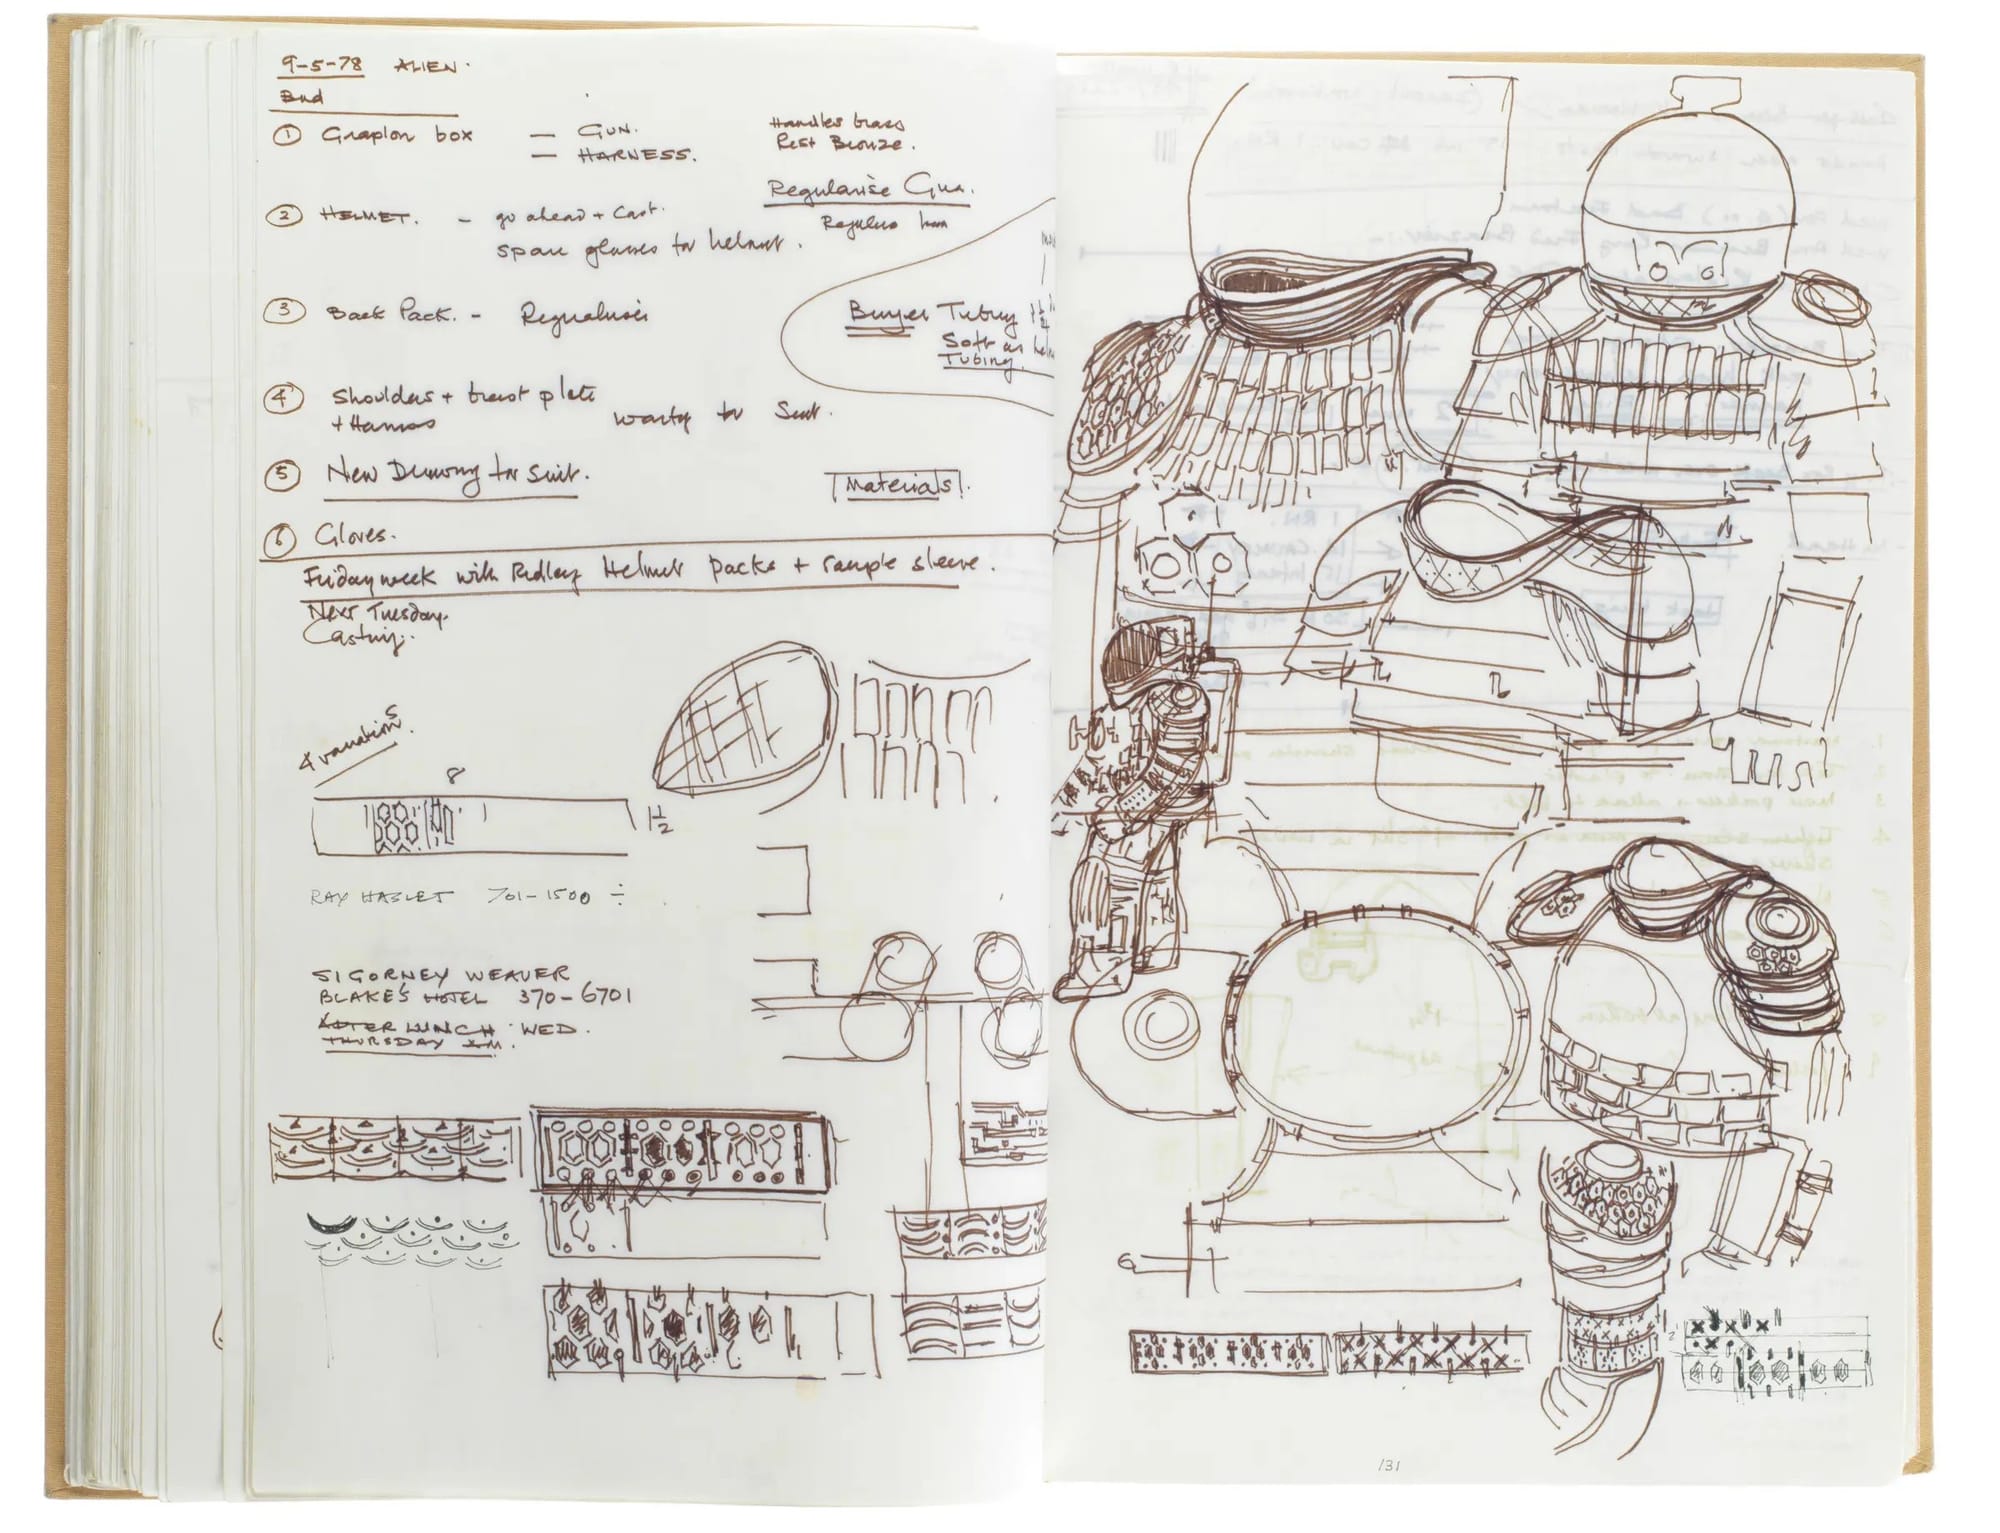 9-5-78 ALIEN.
Bud
① Graplon box — GUN.
— HARNESS.
Handles brass
Rest Bronze.
Regularise Gun.
② HELMET. - go ahead + Cast.
span glasses for helmet.
③ Back Pack. -
Buyer Tubing 1½
Soft as
Tubing.
④ Shoulders + breast plate
+ Harness
for Suit.
⑤ New Drawing for Suit.
Materials.
⑥ Gloves.
Friday week with Ridley Helmet packs + sample sleeve.
Next Tuesday.
Casting.
4 variations.
8
1½
RAY HASLET 701-1500 ÷
SIGORNEY WEAVER
BLAKE'S HOTEL 370-6701
AFTER LUNCH WED.
THURSDAY AM.
6
131